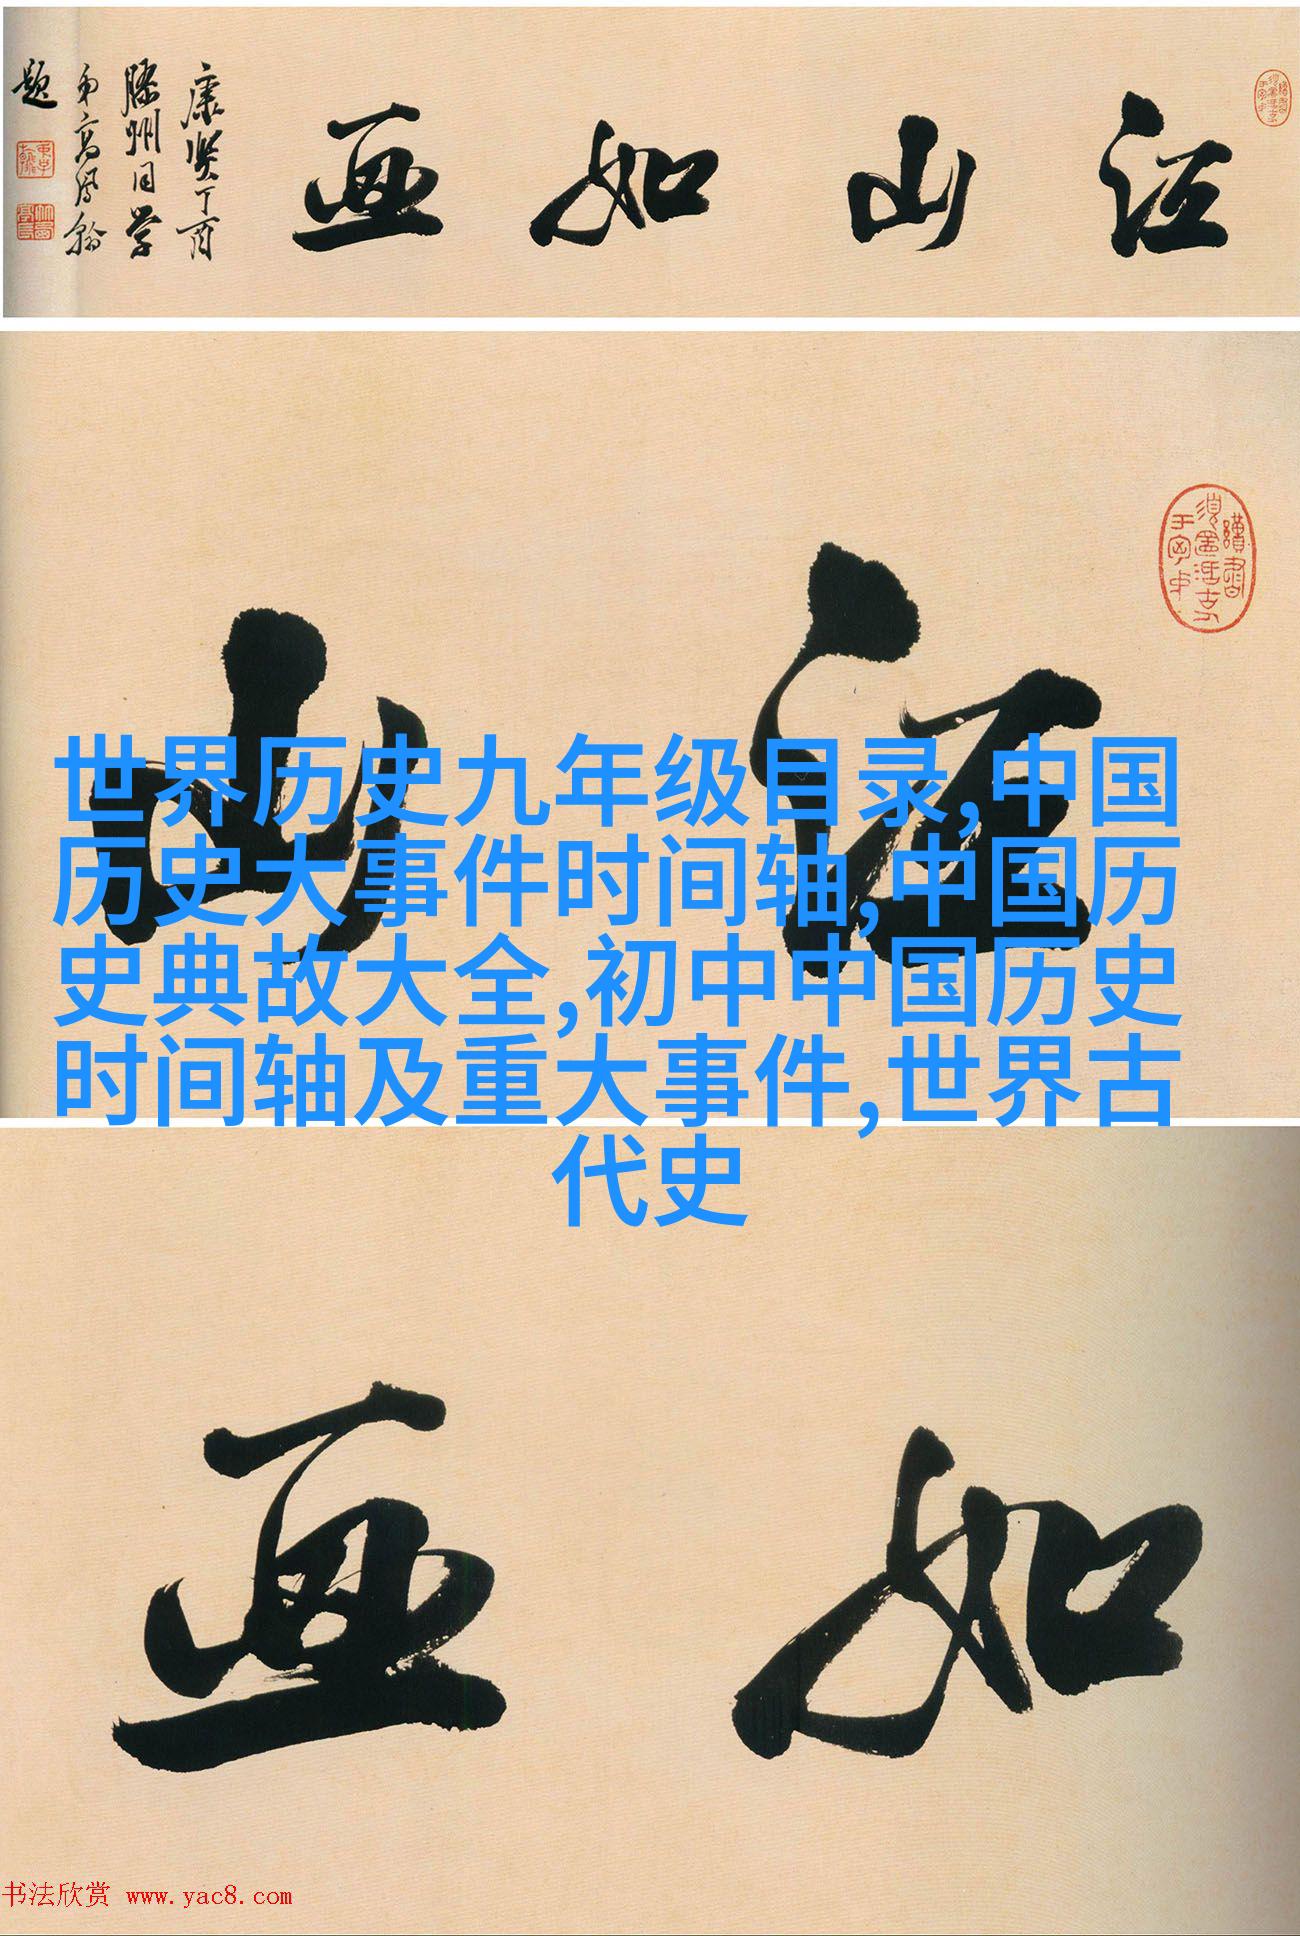 江山如画
康贤丁酉
滕州同学
弟高凤翰
题
山 江
世界历史九年级目录,中国
历史大事件时间轴,中国历
史典故大全,初中中国历史
时间轴及重大事件,世界古
代史
画 如
书法欣赏 www.yac8.com